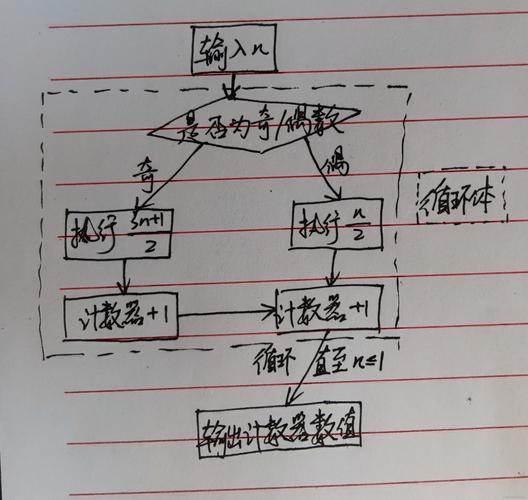 输入n
是否为奇/偶数
奇
偶
循环体
执行 3n+1/2
执行 n/2
计数器+1
计数器+1
循环 直至n≤1
输出计数器数值